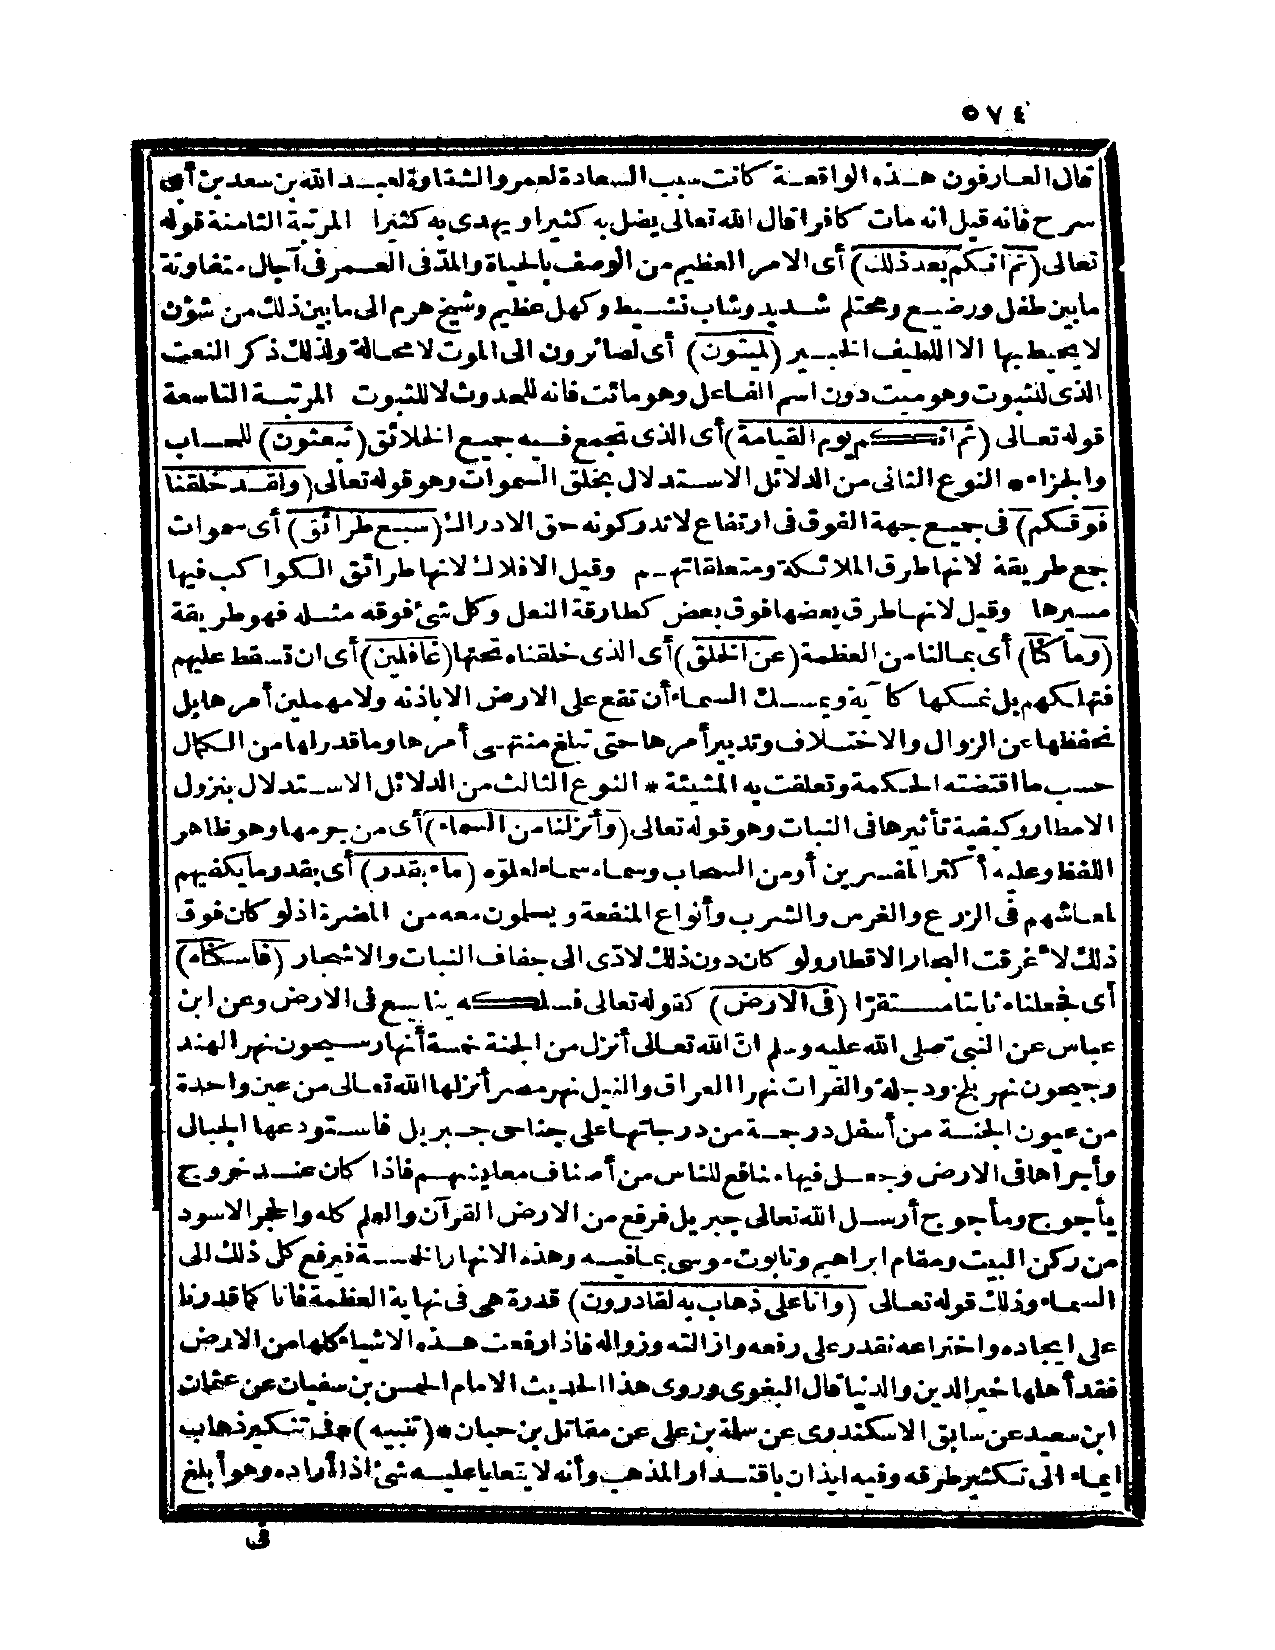 ٥٧٤
قال العارفون هذه الواقعة كانت سبب السعادة لعمر والشقاوة لعبد الله بن سعد بن أبى
سرح فانه قيل انه مات كافرا قال الله تعالى يضل به كثيرا ويهدى به كثيرا المرتبة الثامنة قوله
تعالى (ثم انكم بعد ذلك) أى الامر العظيم من الوصف بالحياة والمدّ فى العمر فى آجال متفاوتة
ما بين طفل ورضيع ومحتلم شديد وشاب نشيط وكهل عظيم وشيخ هرم الى ما بين ذلك من شؤن
لا يحيط بها الا اللطيف الخبير (لميتون) أى لصائرون الى الموت لا محالة ولذلك ذكر النعت
الذى للثبوت وهو ميت دون اسم الفاعل وهو مائت فانه للحدوث لا للثبوت المرتبة التاسعة
قوله تعالى (ثم انكم يوم القيامة) أى الذى تجمع فيه جميع الخلائق (تبعثون) للحساب
والجزاء * النوع الثانى من الدلائل الاستدلال بخلق السموات وهو قوله تعالى (ولقد خلقنا
فوقكم) فى جميع جهة الفوق فى ارتفاع لا تدركونه حق الادراك (سبع طرائق) أى سموات
جمع طريقة لانها طرق الملائكة ومتعلقاتهم وقيل الافلاك لانها طرائق الكواكب فيها
مسيرها وقيل لانها طرق بعضها فوق بعض كطارقة النعل وكل شئ فوقه مثله فهو طريقة
(وما كنا) أى بما لنا من العظمة (عن الخلق) أى الذى خلقناه تحتها (غافلين) أى ان تسقط عليهم
فتهلكهم بل نمسكها كآية ويمسك السماء أن تقع على الارض الا باذنه ولا مهملين أمرها بل
نحفظها عن الزوال والاختلاف وتدبير أمرها حتى تبلغ منتهى أمرها وما قدر لها من الكمال
حسب ما اقتضته الحكمة وتعلقت به المشيئة * النوع الثالث من الدلائل الاستدلال بنزول
الامطار وكيفية تأثيرها فى النبات وهو قوله تعالى (وأنزلنا من السماء) أى من جرمها وهو ظاهر
اللفظ وعليه أكثر المفسرين أو من السحاب وسماه سماء لعلوّه (ماء بقدر) أى بقدر ما يكفيهم
لمعاشهم فى الزرع والغرس والشرب وأنواع المنفعة ويسلمون معه من المضرة اذ لو كان فوق
ذلك لأغرقت البحار الاقطار ولو كان دون ذلك لادّى الى جفاف النبات والاشجار (فأسكناه)
أى فجعلناه ثابتا مستقرّا (فى الارض) كقوله تعالى فسلكه ينابيع فى الارض وعن ابن
عباس عن النبى صلى الله عليه وسلم انّ الله تعالى أنزل من الجنة خمسة أنهار سيحون نهر الهند
وجيحون نهر بلخ ودجلة والفرات نهرا العراق والنيل نهر مصر أنزلها الله تعالى من عين واحدة
من عيون الجنة من أسفل درجة من درجاتها على جناحى جبريل فاستودعها الجبال
وأجراها فى الارض وجعل فيها منافع للناس من أصناف معايشهم فاذا كان عند خروج
يأجوج ومأجوج أرسل الله تعالى جبريل فرفع من الارض القرآن والعلم كله والحجر الاسود
من ركن البيت ومقام ابراهيم وتابوت موسى بما فيه وهذه الانهار الخمسة فيرفع كل ذلك الى
السماء وذلك قوله تعالى (وانا على ذهاب به لقادرون) قدرة هى فى نهاية العظمة فانا كما قدرنا
على ايجاده واختراعه نقدر على رفعه وازالته وزواله فاذا رفعت هذه الاشياء كلها من الارض
فقد أهلها خير الدين والدنيا قال البغوى وروى هذا الحديث الامام الحسن بن سفيان عن عثمان
ابن سعيد عن سابق الاسكندرى عن سلمة بن على عن مقاتل بن حيان * (تنبيه) * فى تنكير ذهاب
ايماء الى تكثير طرقه وفيه ايذان باقتدار المذهب وأنه لا يتعايا عليه شئ اذا أراده وهو أبلغ
فى